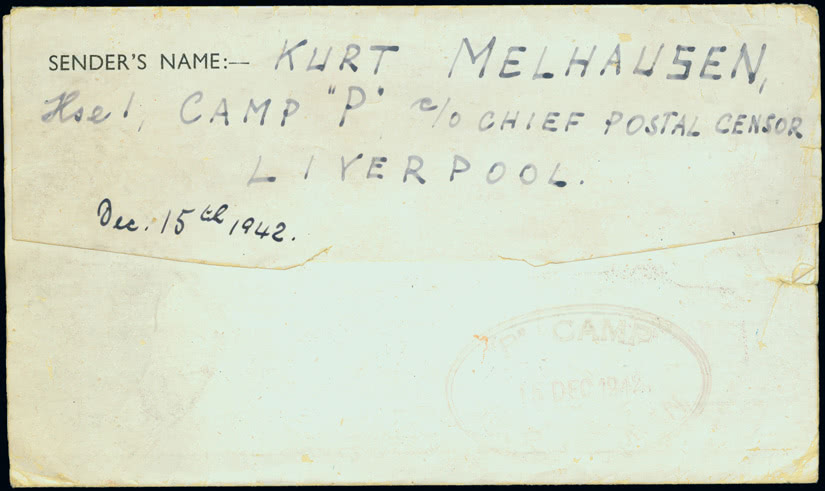 SENDER'S NAME:— KURT MELHAUSEN,
Hse 1, CAMP "P", c/o CHIEF POSTAL CENSOR
LIVERPOOL.
Dec. 15th 1942.
"P" CAMP
15 DEC 1942